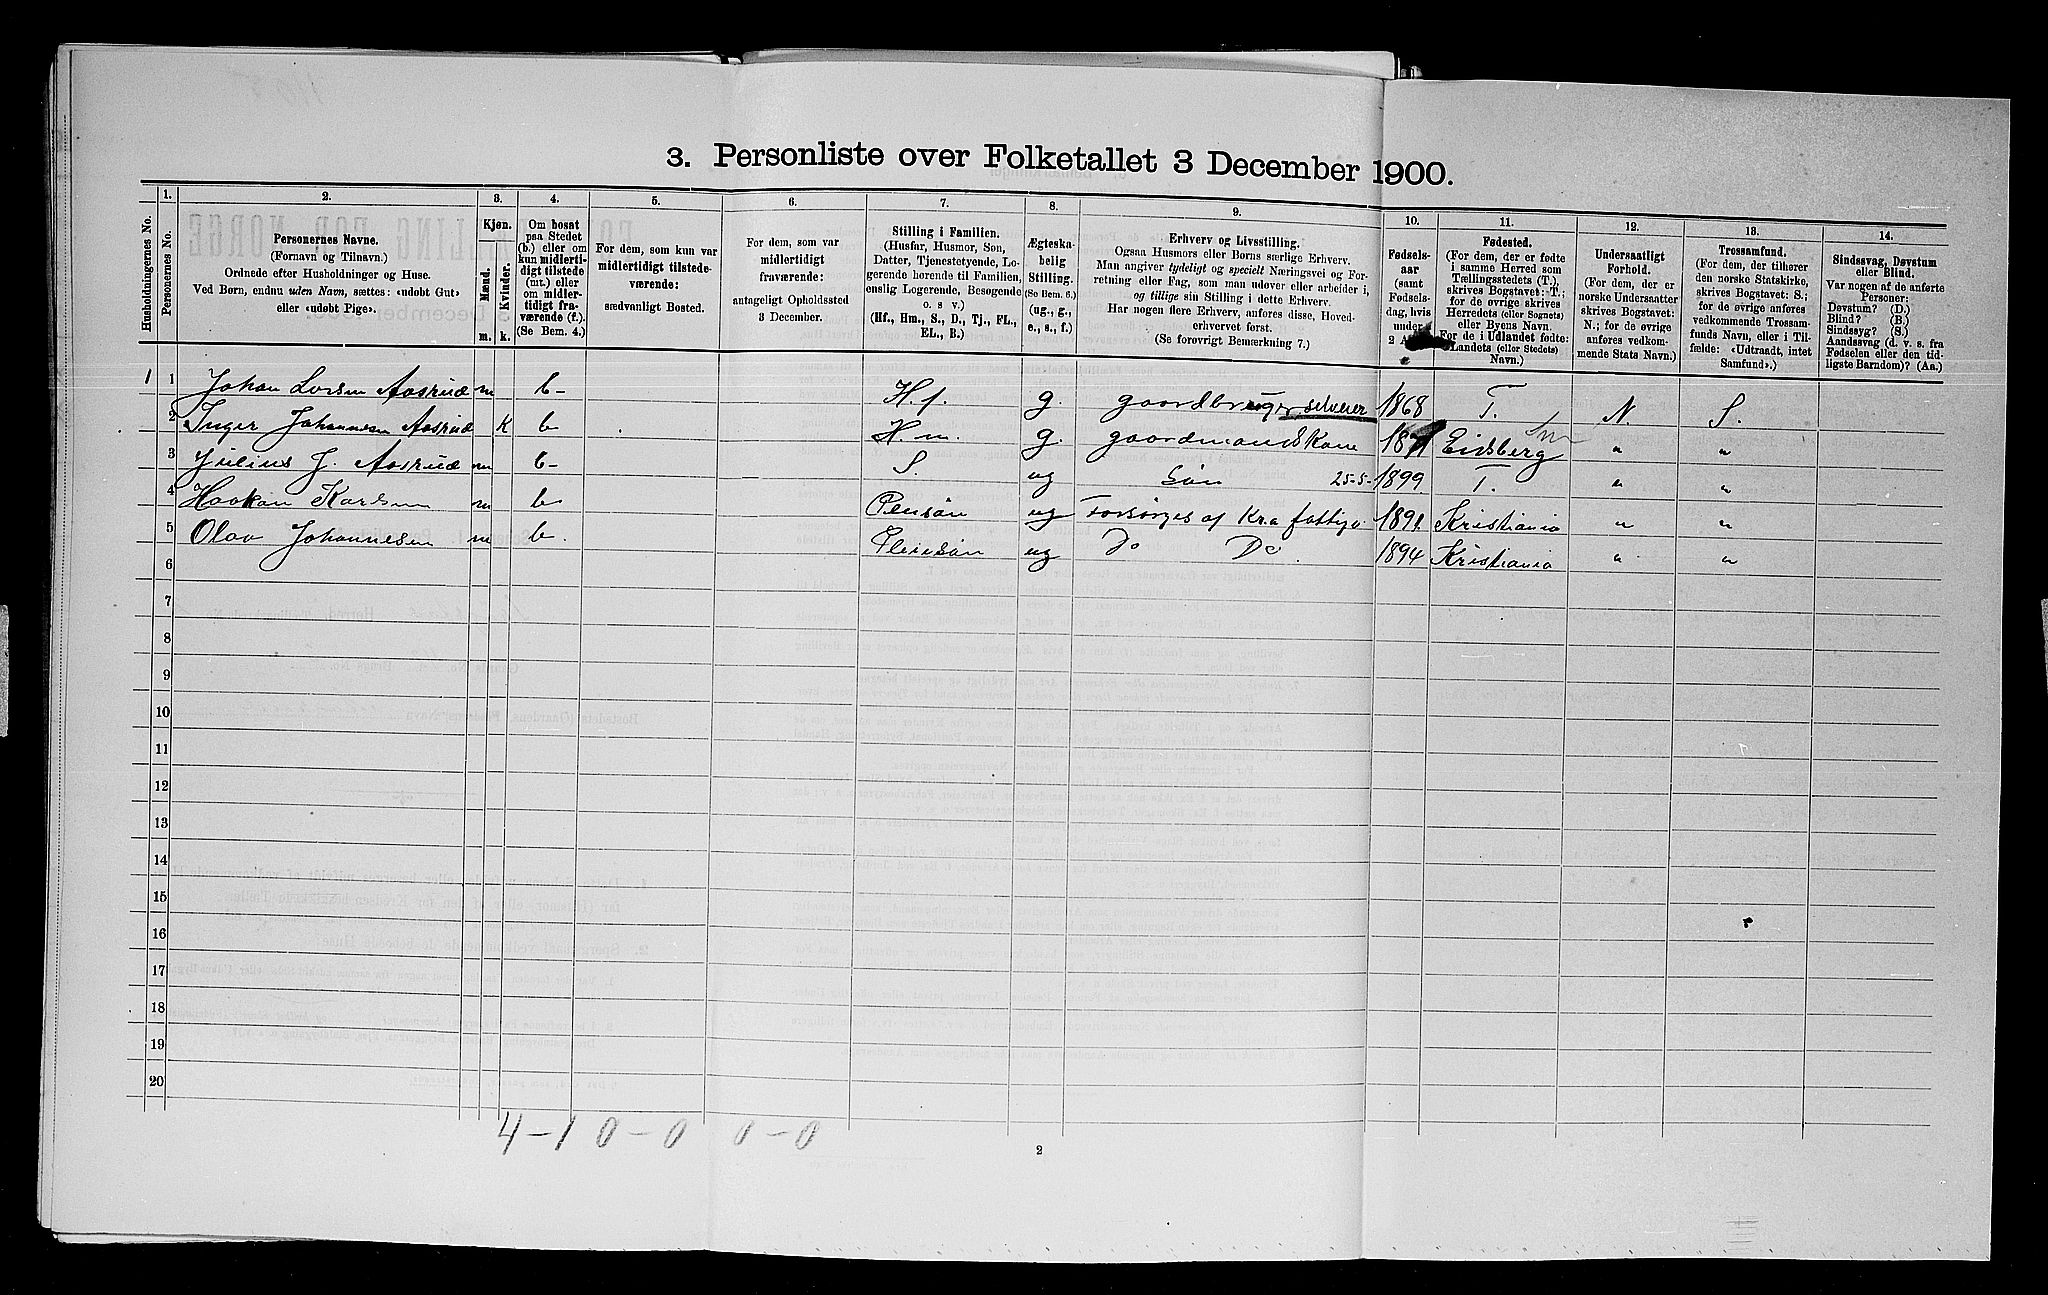 3. Personliste over Folketallet 3 December 1900.
Husholdningernes No.
1.
Personernes No.
2.
Personernes Navne.
(Fornavn og Tilnavn.)
Ordnede efter Husholdninger og Huse.
Ved Børn, endnu uden Navn, sættes: «udøbt Gut»
eller «udøbt Pige».
3.
Kjøn.
Mænd.
Kvinder.
m. k.
4.
Om bosat
paa Stedet
(b.) eller om
kun midlerti-
digt tilstede
(mt.) eller
om midler-
tidigt fra-
værende (f.).
(Se Bem. 4.)
5.
For dem, som kun var
midlertidigt tilstede-
værende:
sædvanligt Bosted.
6.
For dem, som var
midlertidigt
fraværende:
antageligt Opholdssted
3 December.
7.
Stilling i Familien.
(Husfar, Husmor, Søn,
Datter, Tjenestetyende, Lo-
gerende hørende til Familien,
enslig Logerende, Besøgende
o. s v.)
(Hf., Hm., S., D., Tj., FL.,
EL., B.)
8.
Ægteska-
belig
Stilling.
(Se Bem. 6.)
(ug., g.,
e., s., f.)
9.
Erhverv og Livsstilling.
Ogsaa Husmors eller Børns særlige Erhverv.
Man angiver tydeligt og specielt Næringsvei og For-
retning eller Fag, som man udøver eller arbeider i,
og tillige sin Stilling i dette Erhverv.
Har nogen flere Erhverv, anføres disse, Hoved-
erhvervet først.
(Se forøvrigt Bemærkning 7.)
10.
Fødsels-
aar
(samt
Fødsels-
dag, hvis
under
2 A
11.
Fødested.
(For dem, der er fødte
i samme Herred som
Tællingsstedets (T.),
skrives Bogstavet: T.;
for de øvrige skrives
Herredets (eller Sognets)
eller Byens Navn.
For de i Udlandet fødte:
Landets (eller Stedets)
Navn.)
12.
Undersaatligt
Forhold.
(For dem, der er
norske Undersaatter
skrives Bogstavet:
N.; for de øvrige
anføres vedkom-
mende Stats Navn.)
13.
Trossamfund.
(For dem, der tilhører
den norske Statskirke,
skrives Bogstavet: S.;
for de øvrige anføres
vedkommende Trossam-
funds Navn, eller i Til-
fælde: «Udtraadt, intet
Samfund».)
14.
Sindssvag, Døvstum
eller Blind.
Var nogen af de anførte
Personer:
Døvstum? (D.)
Blind? (B.)
Sindssyg? (S.)
Aandssvag (d. v. s. fra
Fødselen eller den tid-
ligste Barndom)? (Aa.)
1 1 Johan Larsen Aasrud m b- H.f. g. gaardbruger, selveier 1868 T. N. S.
2 Inger Johannesen Aasrud K b H.m. g. gaardmandskone 1871 Eidsberg " "
3 Julius J. Aasrud m b- S. ug Søn 25-5- 1899 T. " "
4 Haakon Karlsen m b Pleisøn ug Forsørges af Kr.a fattigv. 1891 Kristiania " "
5 Olav Johannesen m b. Pleisøn ug Do Do. 1894 Kristiania " "
6
7
8
9
10
11
12
13
14
15
16
17
18
19
20
4-1 0-0 0-0
2